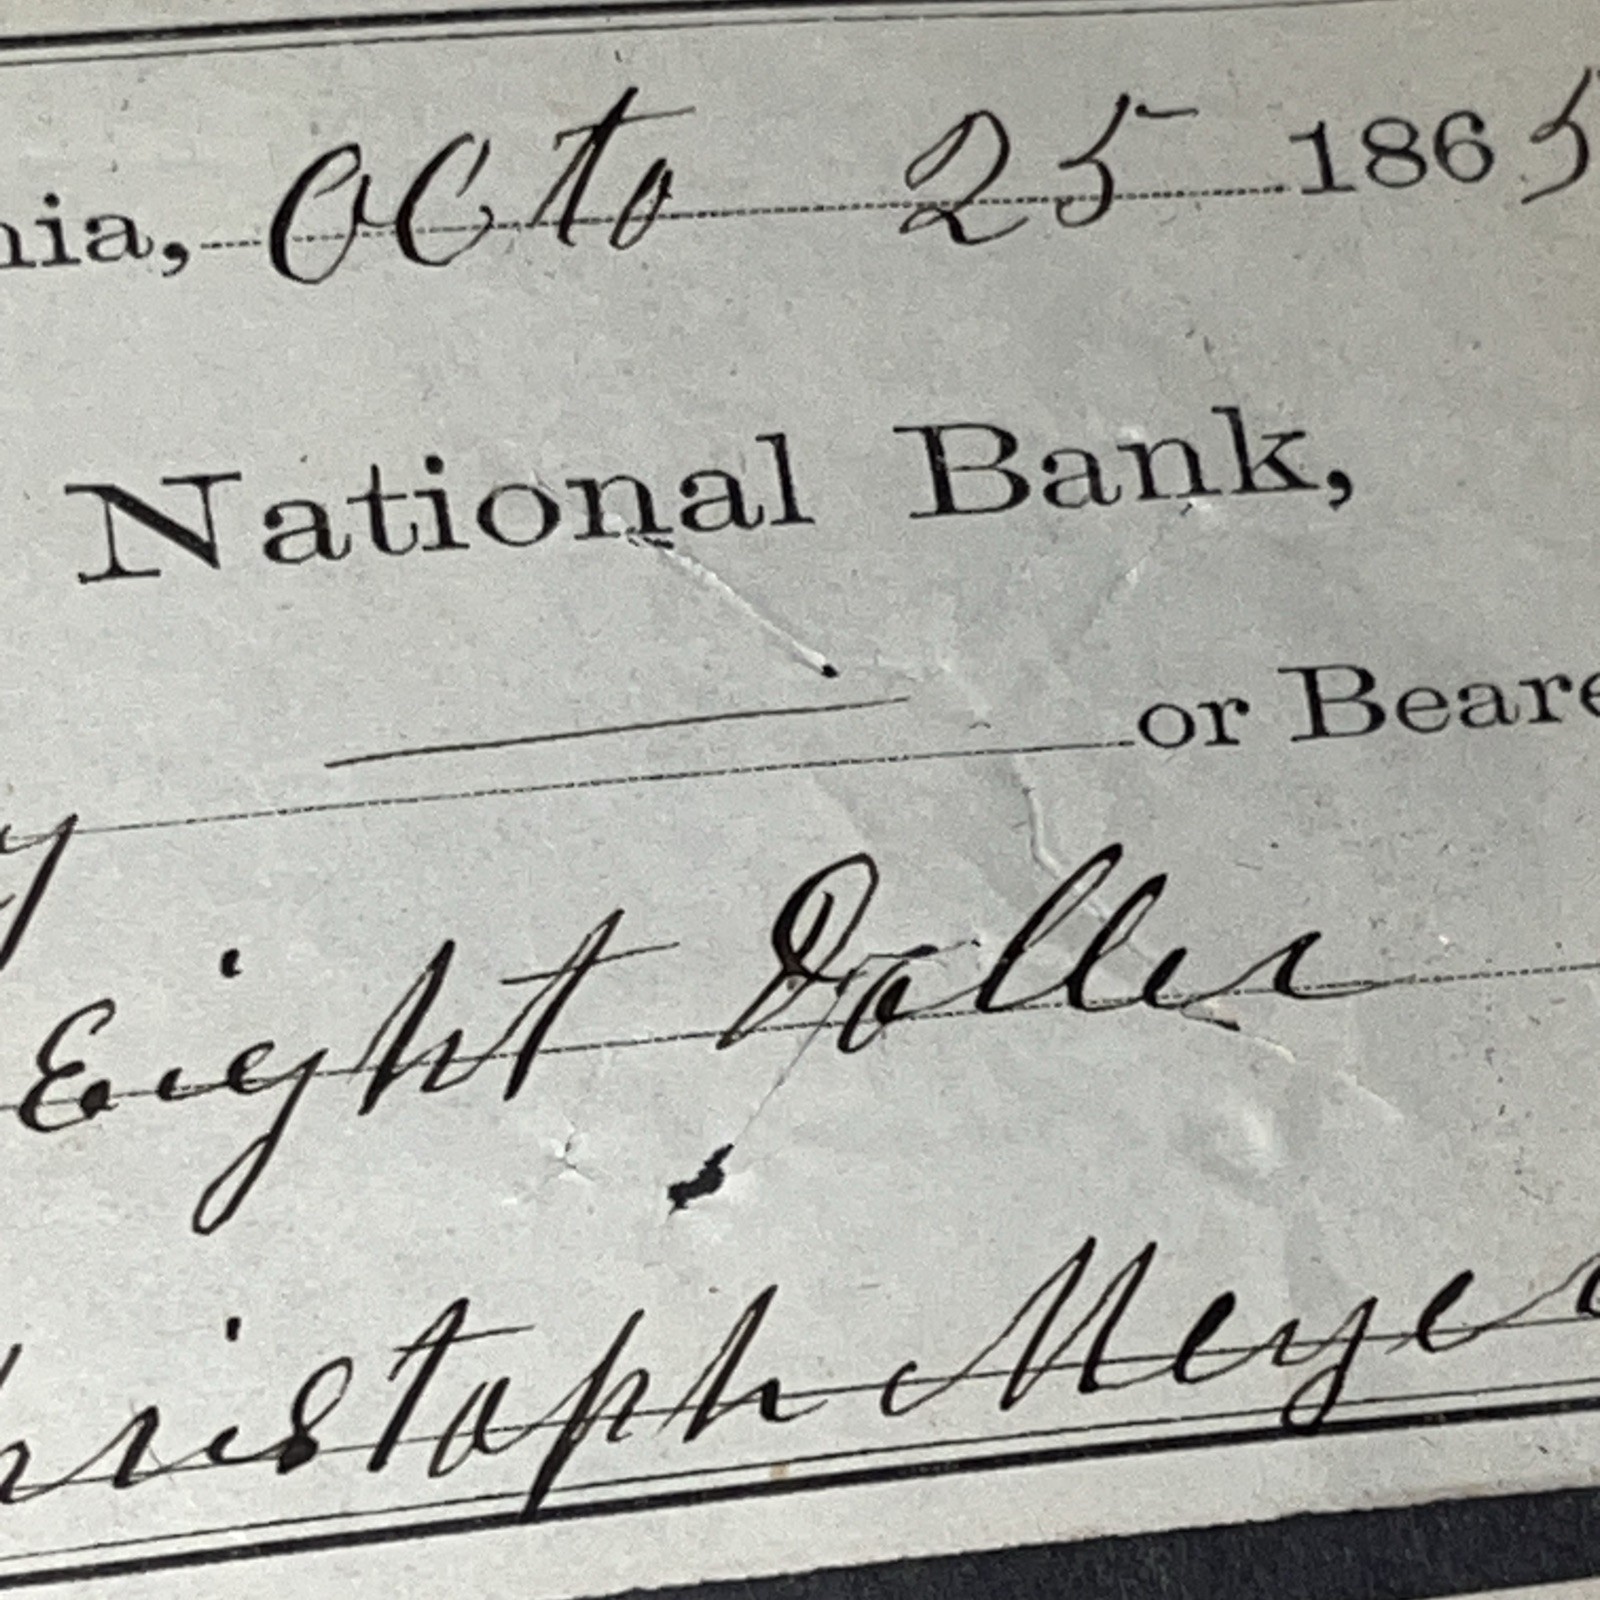 nia, Octo 25 1865
National Bank,
or Beare
y
Eight Doller
hristoph Meyer